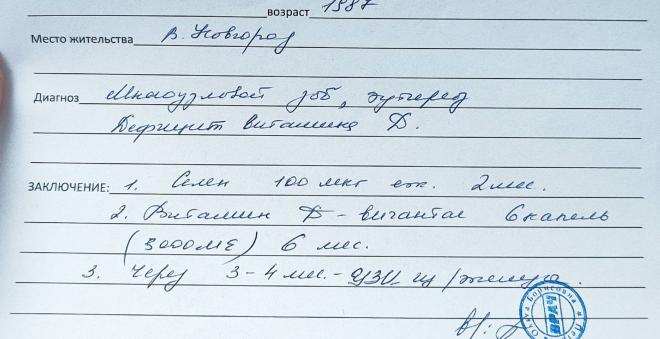 возраст 1987
Место жительства В. Новгород
Диагноз Многоузловой зоб, эутиреоз
Дефицит витамина D.
ЗАКЛЮЧЕНИЕ: 1. Селен 100 мкг еж. 2 мес.
2. Витамин D - вигантол 6 капель
(3000МЕ) 6 мес.
3. Через 3-4 мес. - УЗИ щ/железы.
Борисовна